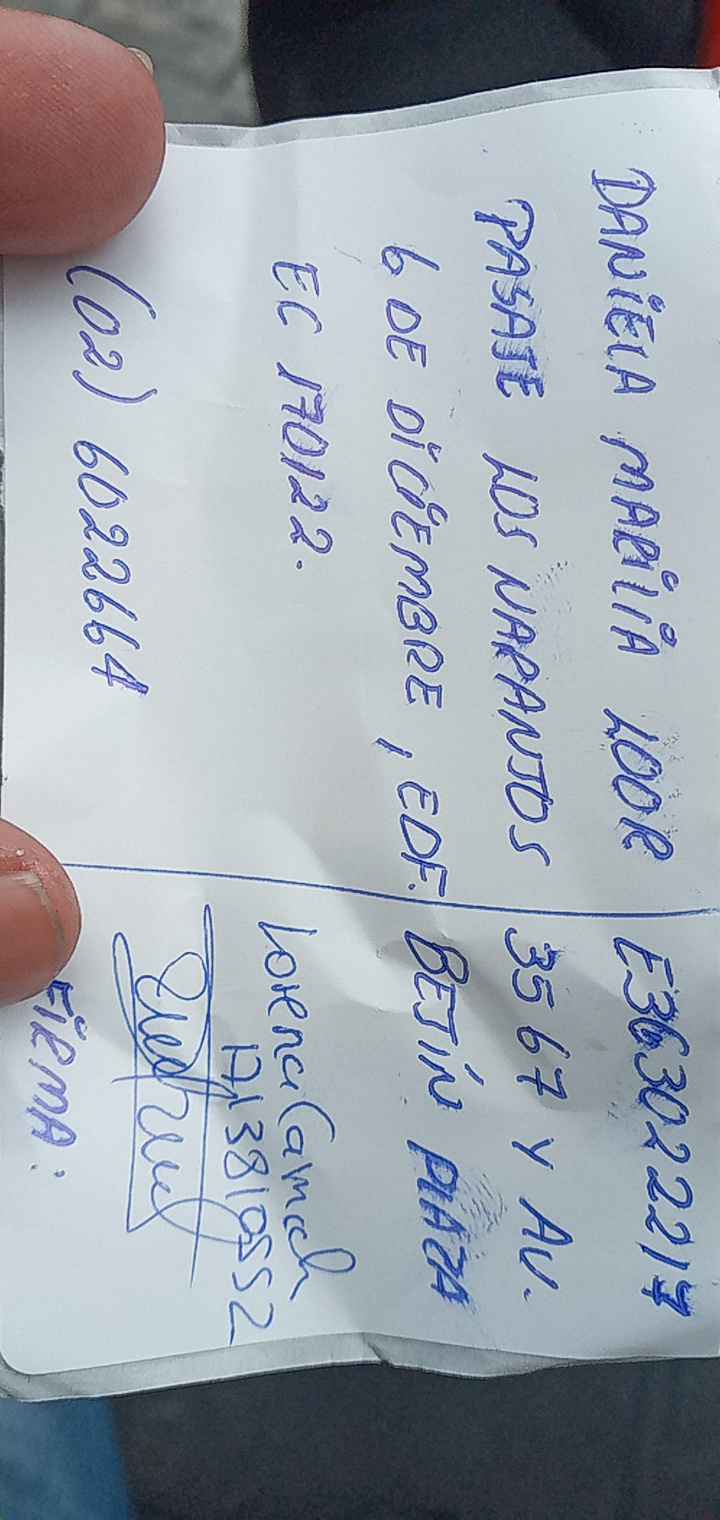 DANIELA MARILIA LOOR E363022217
PASAJE LOS NARANJOS 3567 Y AV.
6 DE DICIEMBRE, EDF. BETIN PLAZA
EC 170122.
(02) 6022664
Lorena Camach
1713810552
FIRMA: